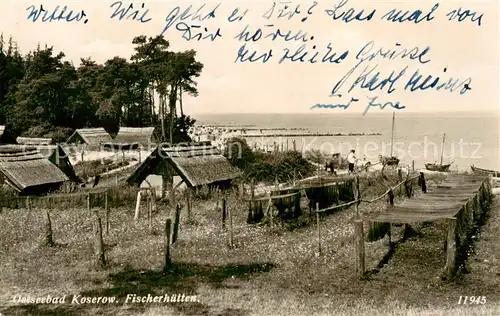 Wetter. Wie geht es Dir? Lass mal von
Dir hören.
Herzliche Grüsse
Karl Heinz
und Frau
Ostseebad Koserow. Fischerhütten.
11945